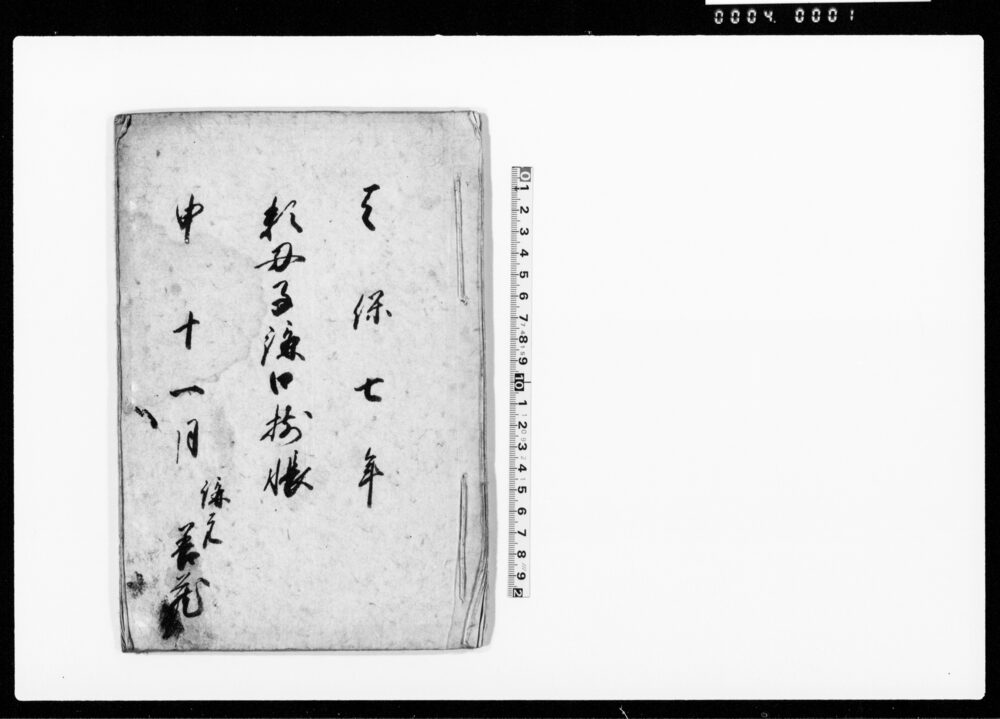 0004. 0001
天保七年
頼母子講口掛帳
申十一月
講元
善蔵
0 1 2 3 4 5 6 7 8 9 10 1 2 3 4 5 6 7 8 9 2